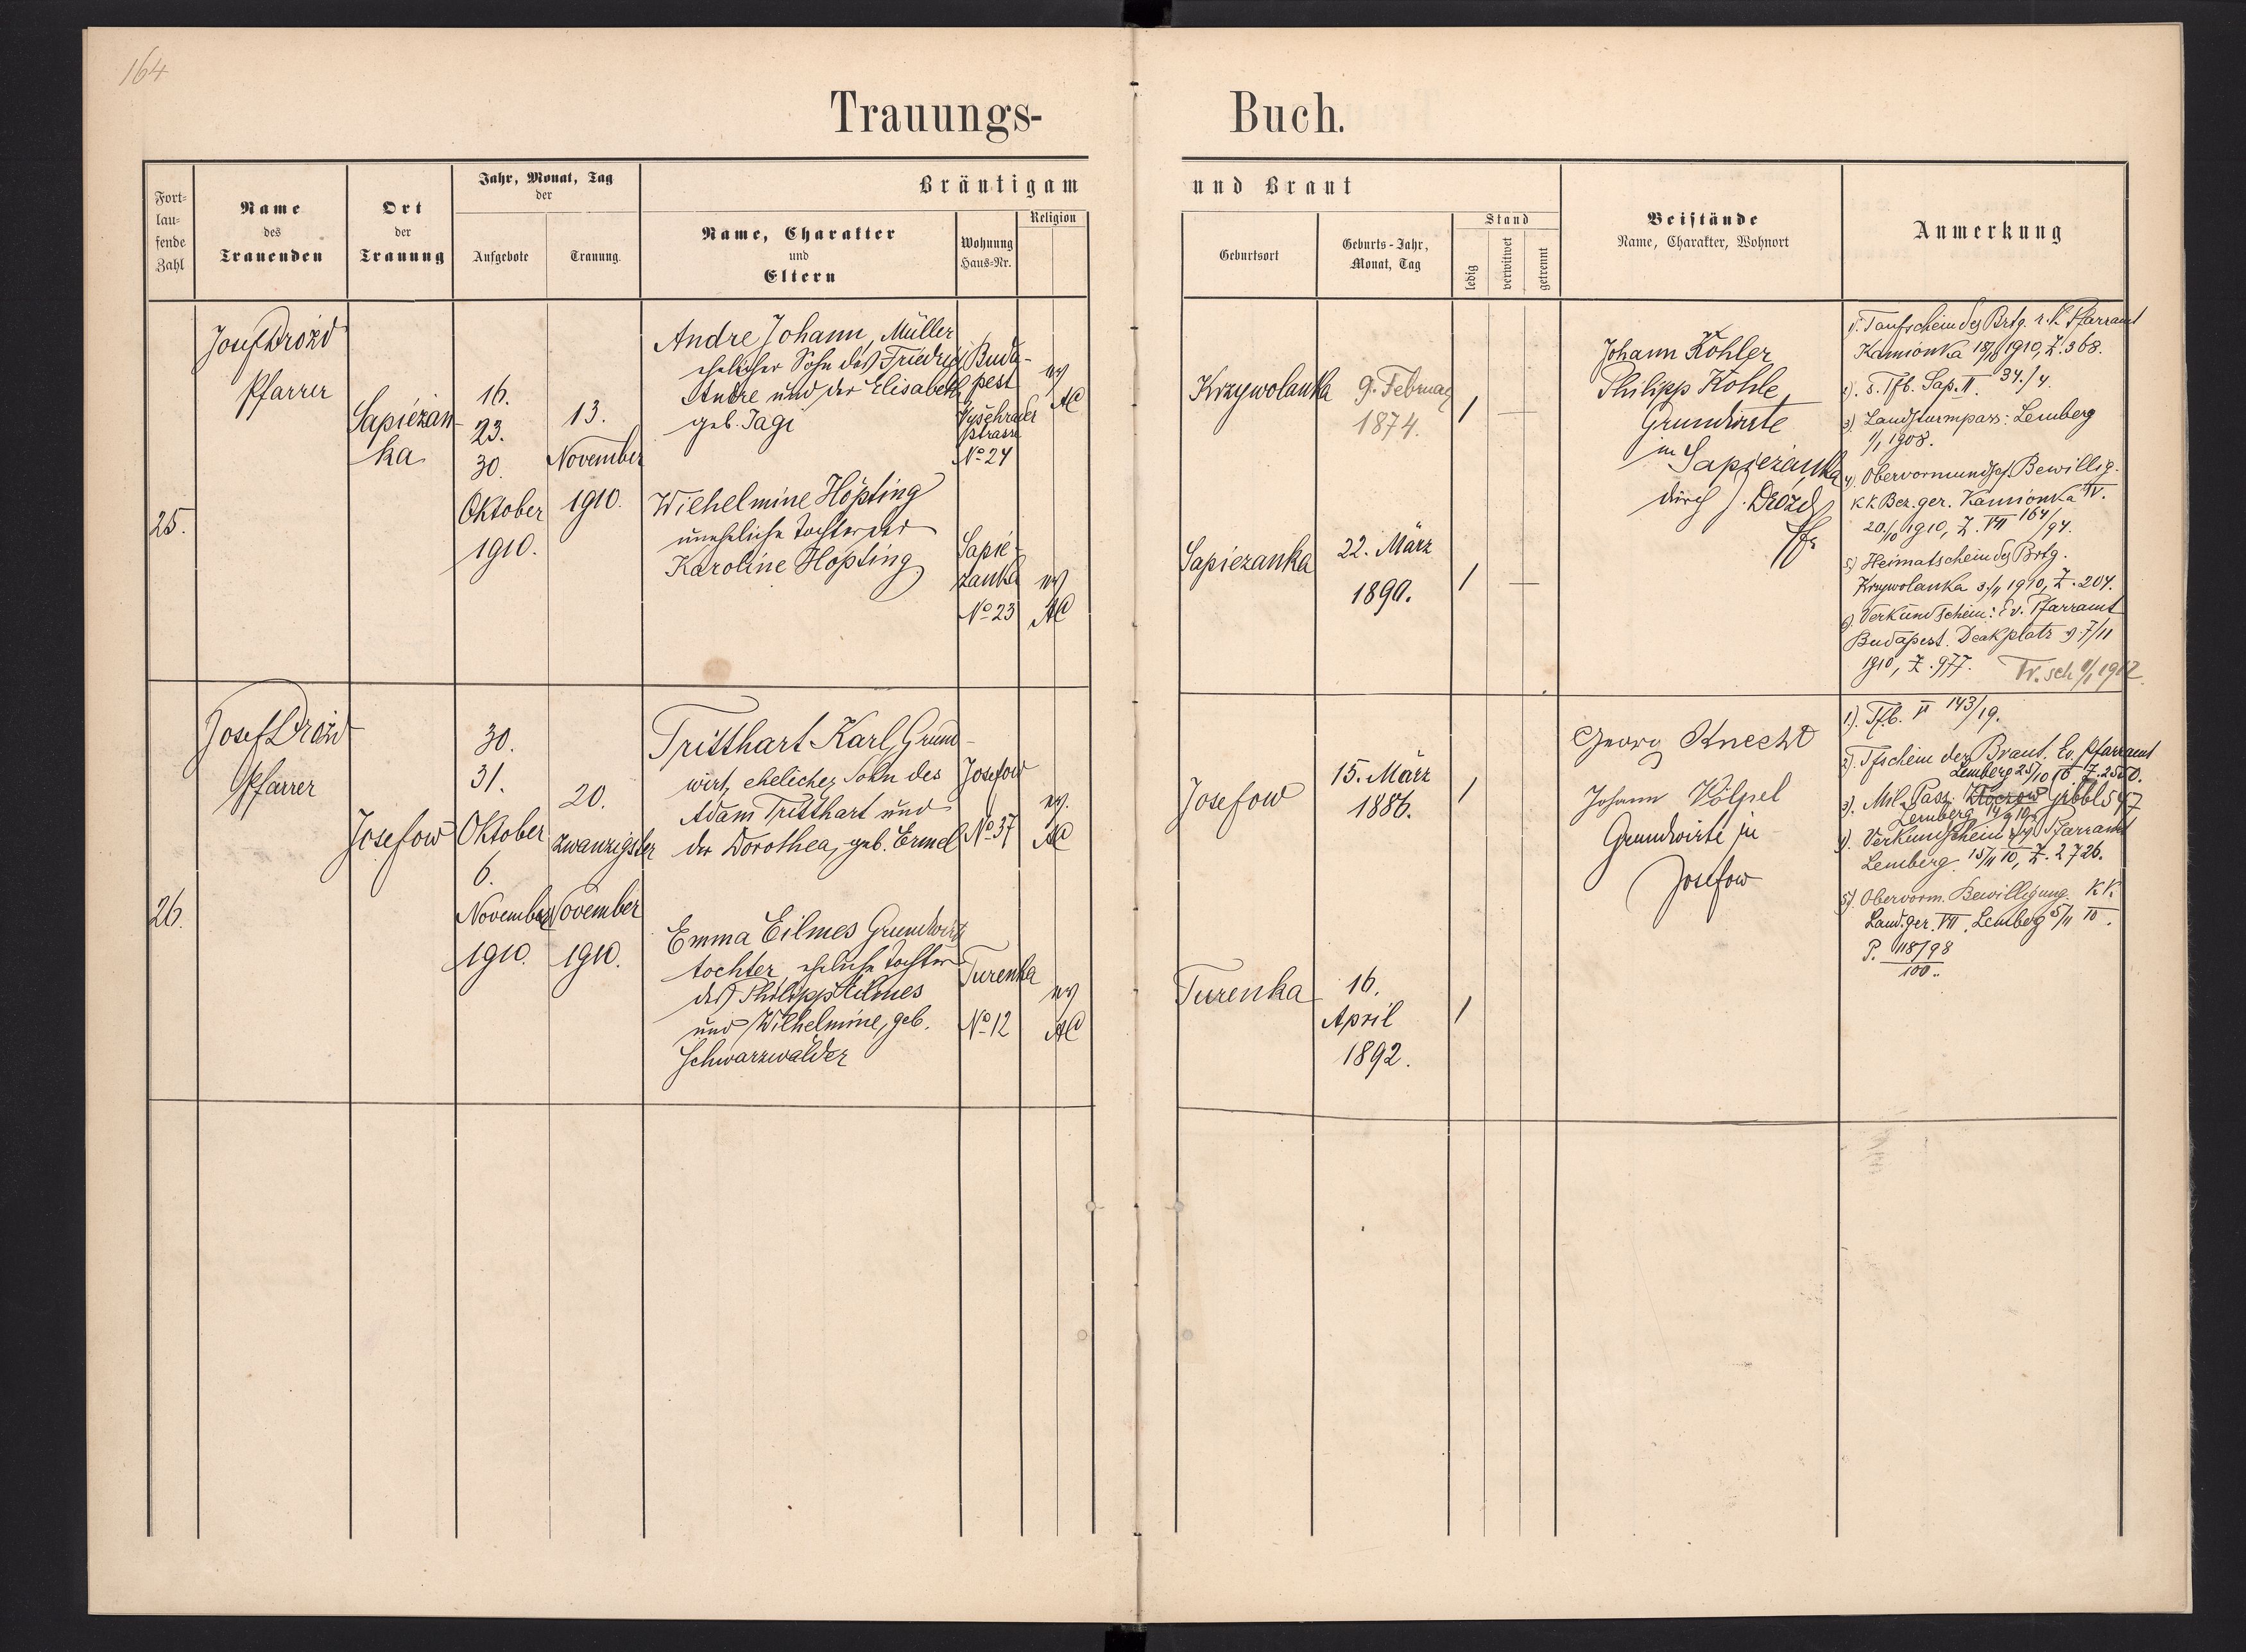 164
Trauungs- Buch.
Fort-
lau-
fende
Zahl
Name
des
Trauenden
Ort
der
Trauung
Jahr, Monat, Tag
der
Aufgebote
Trauung.
Bräutigam und Braut
Name, Charakter
und
Eltern
Wohnung
Haus-Nr.
Religion
Geburtsort
Geburts-Jahr,
Monat, Tag
Stand
ledig
verwitwet
getrennt
Beistände
Name, Charakter, Wohnort
Anmerkung
25.
Josef Drozd
Pfarrer
Sapiezan-
ka
16.
23.
30.
Oktober
1910.
13.
November
1910.
Andre Johann, Müller
ehelicher Sohn des Friedrich
Andre und der Elisabeth
geb. Jagi
Buda-
pest
strasse
No 24
ev
AC
Wilhelmine Höpting
uneheliche Tochter der
Karoline Höpting
Sapie-
zanka
No 23
ev
AC
Krzywolanka
9. Februar
1874.
/
Sapiezanka
22. März
1890.
/
Johann Köhler
Philipp Köhle
Grundwirte
in Sapiezanka
durch J. Drozd
Pfr
1). Taufschein des Brtg. r. k. Pfarramt
Kamionka 18/10 1910, Z. 368.
2). s. Tfb. Sap. II. 34./4.
3) Landsturmpass: Lemberg
1/1 1908.
4) Obervormundsch. Bewillig.
KK Bez. ger. Kamionka IV.
20/10 1910, Z. VII 164/94.
5) Heimatschein des Brtg.
Krzywolanka 3/11 1910, Z. 204.
6). Verkündschein: Ev. Pfarramt
Budapest. Deakplatz 7/11
1910, Z. 977. Tr. sch 9/1 1912.
26.
Josef Drozd
Pfarrer
Josefow
30.
31.
Oktober
6.
November
1910.
20.
zwanzigster
November
1910.
Tritthart Karl, Grund-
wirt, ehelicher Sohn des
Adam Tritthart und
der Dorothea, geb. Ermel
Josefow
No 37
ev.
AC
Emma Eilmes Grundwirts
tochter, eheliche Tochter
des Philipp Eilmes
und Wilhelmine, geb.
Schwarzwälder
Turenka
No 12
ev
AC
Josefow
15. März
1886.
/
Turenka
16.
April
1892.
/
Georg Knecht
Johann Kölpel
Grundwirte in
Josefow
1). Tfb. II 143/19.
2). Tfschein der Braut. Ev. Pfarramt
Lemberg 25/10 10. Z. 2580.
3). Mil. Pass.
Lemberg
4). Verkündschein Ev. Pfarramt
Lemberg 15/11 10, Z. 2726.
5). Obervorm. Bewilligung. KK.
Land. ger. VII. Lemberg 5/11 10.
P. 118/98
100..